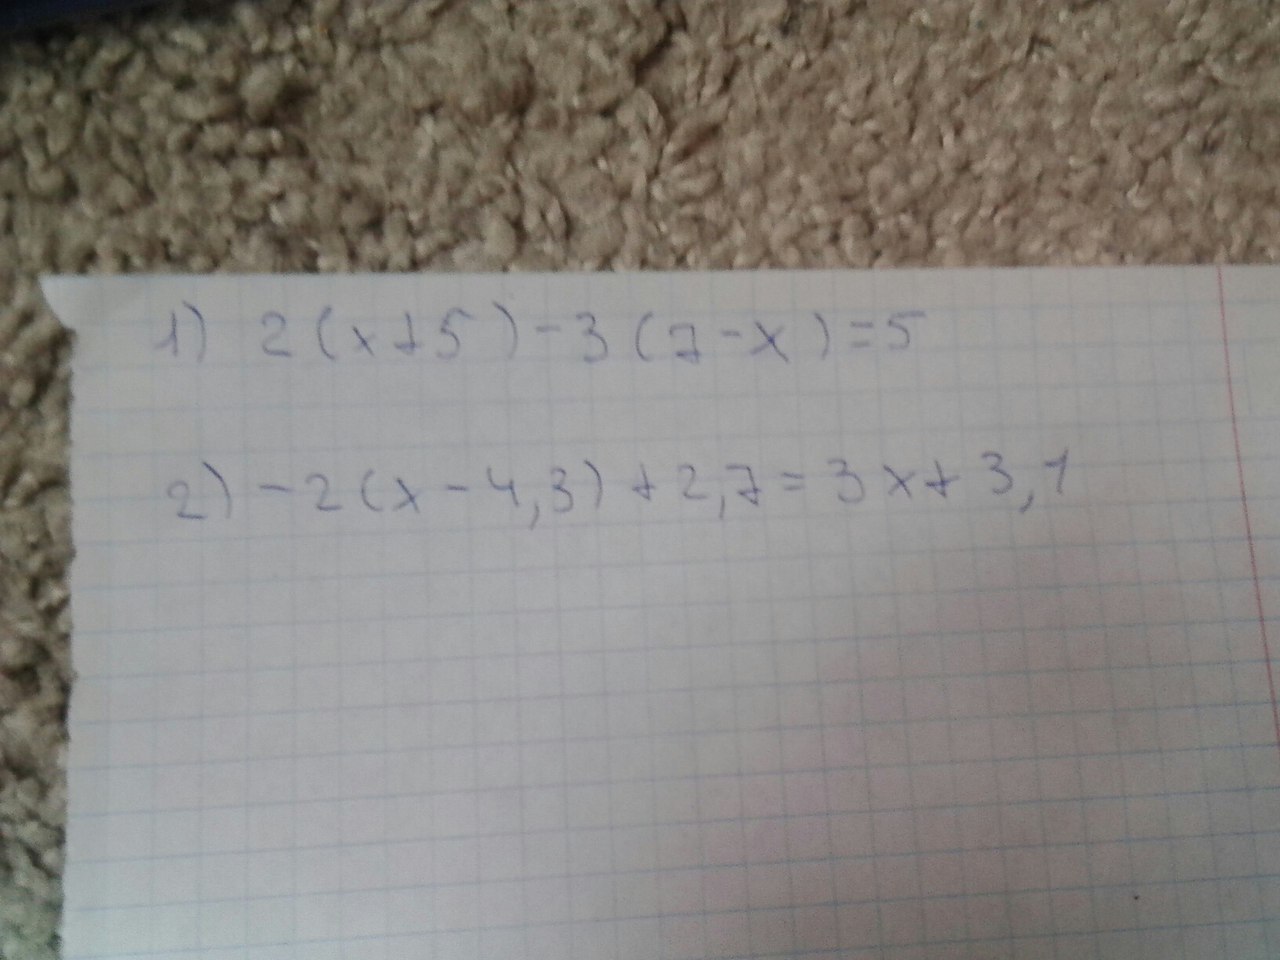 1) 2(x+5)-3(7-x)=5
2) -2(x-4,3)+2,7=3x+3,1